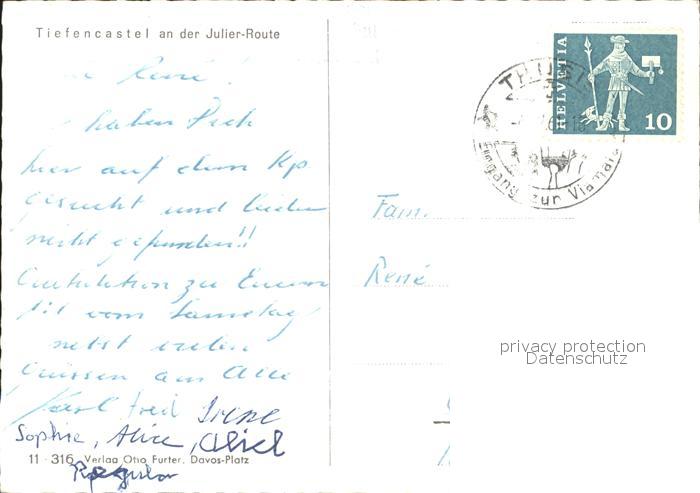 Tiefencastel an der Julier-Route
René!
haben Dich
hier auf dem Kp
gesucht und leider
nicht gefunden!!
Gratulation zu Eurem
vom Samstag
nebst vielen
Grüssen an Alle
Karl Irene
Sophie, Alice,
11 - 316 Verlag Otto Furter, Davos-Platz
HELVETIA
10
THUSIS
Eingang zur Viamala
Fam.
René
privacy protection
Datenschutz